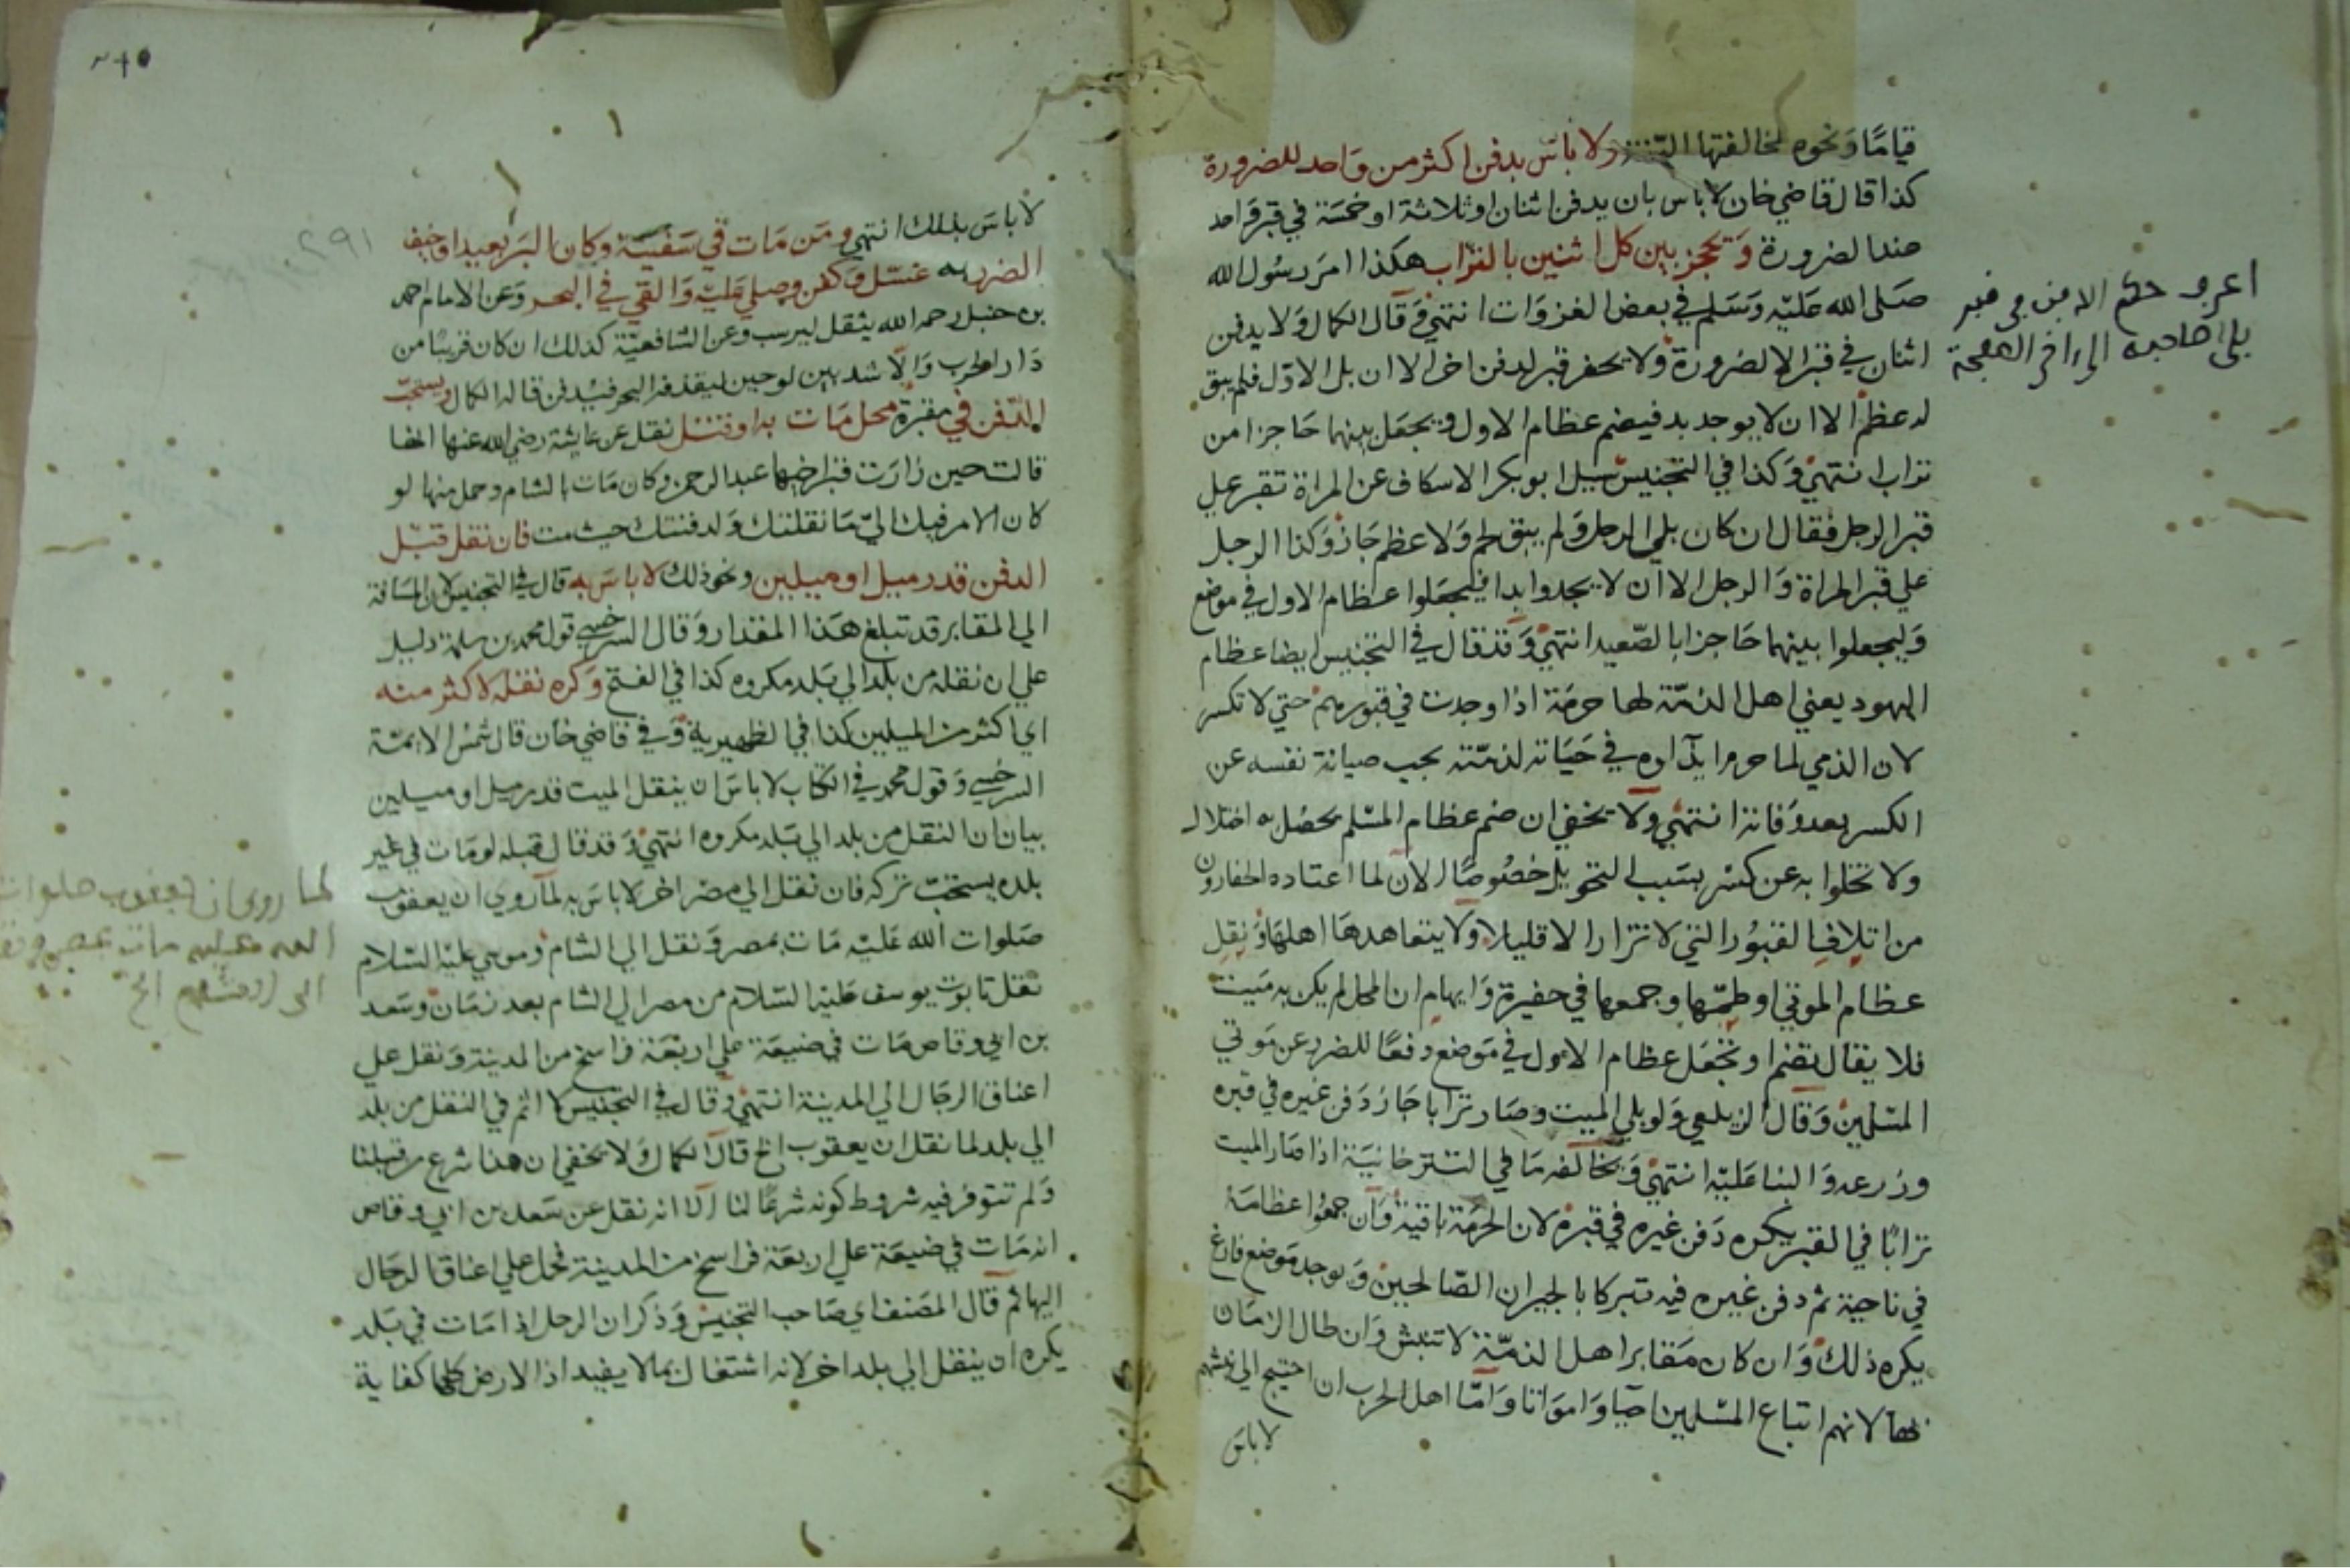 قيامًا وَنحوه لمخالفتها السنة ولا باس بدفن اكثر من وَاحد للضرورة
كذا قال قاضي خان لا باس بان يدفن اثنان او ثلاثة او خمسَة في قبر وَاحد
عند الضرورة وَيحجز بين كل اثنين بالتراب هكذا امرَ رسُول الله
صَلى الله عَليْه وَسَلم في بعض الغزوَات انتهيٰ وَقال الكمال وَلا يدفن
اثنان في قبر الا لضرورة وَلا يحفر قبر لدفن اخر الا ان بلى الاوّل فلم يبق
له عظم الا ان لا يوجد بد فيضم عظام الاول وَيجعَل بينهما حَاجزا من
تراب انتهيٰ وَكذا في التجنيس سيل ابو بكر الاسكاف عن المراة تقبر علي
قبر الرجل فقال ان كان بلي الرجل وَلم يبق لحم وَلا عظم جَاز وَكذا الرجل
علي قبر المراة وَالرجل الا ان لا يجدوا بدا فليجعَلوا عظام الاول في موضع
وَليجعلوا بينهما حَاجزا بالصّعيد انتهيٰ وَقد قال في التجنيس ايضا عظام
اليهود يعني اهل الذمّة لها حرمَة اذا وجدت في قبورهم حتي لا تكسر
لان الذمي لما حرم ايذاوه في حَيَاته لذمّته يجب صيانة نفسه عن
الكسر بعد وَفاته انتهيٰ وَلا يخفي ان ضم عظام المسْلم يحصُل به اختلال
ولا تخلوا به عن كسْر بسَبب التحويل خصُوصًا الان لما اعتاده الحفارون
من اتلاف القبُور التي لا تزار الا قليلا وَلا يتعاهدهَا اهلهَا وَنقل
عظام الموتي او طمّها وجمعها في حفيرة وَايهام ان المحل لم يكن به مَيت
فلا يقال تضم او تجعَل عظام الاول في مَوضع دفعًا للضرر عن مَوتي
المسْلمين وَقال الزيلعي وَلو بلي الميت وصَار ترابا جَاز دَفن غيره في قبره
وزرعه وَالبنا عَليْه انتهيٰ وَيخالفه مَا في التترخانيَة اذا صَار الميت
ترابًا في القبر يكره دَفن غيره في قبره لان الحرمَة باقية وَان جمعُوا عظامَهُ
في ناحية ثم دفن غيره فيه تبركا بالجيران الصّالحين وَيوجد مَوضع فارغ
يكره ذلك وَان كان مَقابر اهل الذمّة لا تنبش وَان طال الزمَان
لهَا لانهم اتباع المسْلمين احيَا وَاموَاتا وَامّا اهل الحرب ان احتيج الي نبشهم
لا باس
بلى صاحبه الى اخر الصفحة
٢٩١
لا باسَ بذلك انتهي وَمَن مَات في سَفينَة وكان البَر بعيدا وخيف
الضرر به غسّل وَكفن وصلي عَليْه وَالقي في البحر وَعن الامام احمد
بن حنبل رحمه الله يثقل ليرسب وعن الشافعيّة كذلك ان كان قريبًا من
دَار الحرب وَالّا شد بين لوحين ليقذفه البحر فيدفن قاله الكمال ويستحبّ
الدّفن في مقبرة محل مَات به او قتل نقل عن عايشة رضي الله عنها انها
قالت حين زارَت قبر اخيها عبد الرحمن وَكان مَات بالشام وحمل منها لو
كان الامر فيك اليّ مَا نقلتك وَلدفنتك حيث مت فان نقل قبْل
الدفن قدر ميل او ميلين ونحو ذلك لا باسَ به قال في التجنيس لان المسَافة
الي المقابر قد تبلغ هَذا المقدار وَقال السرخسي قول محمد بن سلمة دليل
علي ان نقله من بلد الي بَلد مكروه كذا في الفتح وَكره نقله لاكثر منه
اي اكثر من الميلين كذا في الظهيرية وَفي قاضي خان قال شمْس الايمّة
السرخسي وَقول محمد في الكتاب لا باسَ ان ينقل الميت قدر ميل او ميلين
بيان ان النقل من بلد الي بَلد مكروه انتهيٰ وَقد قال قبله لو مَات في غير
بلده يستحبّ تركه فان نقل الي مصر اخر لا باسَ به لما روي ان يعقوب
صَلوات الله عَليْه مَات بمصر وَنقل الي الشام وموسي عليْه السَلام
نقل تابوت يوسف عليْه السَلام من مصر الي الشام بعد زمَان وسَعد
بن ابي وقاص مَات في ضيعَة علي اربعَة فراسخ من المدينة وَنقل علي
اعناق الرجَال الي المدينة انتهيٰ وَقال في التجنيس لا اثم في النقل من بلد
الي بلد لما نقل ان يعقوب الخ قال الكمال وَلا يخفي ان هذا شرع من قبلنا
وَلم تتوفر فيه شروط كونه شرعًا لنا الا انه نقل عن سَعد بن ابي وقاص
انه مَات في ضيعَة علي اربعَة فراسخ من المدينة فحمل علي اعناق الرجَال
اليها ثم قال المصَنف اي صَاحب التجنيس وَذكر ان الرجل اذا مَات في بَلد
يكره ان ينقل الي بلد اخر لانه اشتغال بمَا لا يفيد اذ الارض كلها كفاية
لما روى ان يعقوب صلوات
الله عليه مات بمصر و